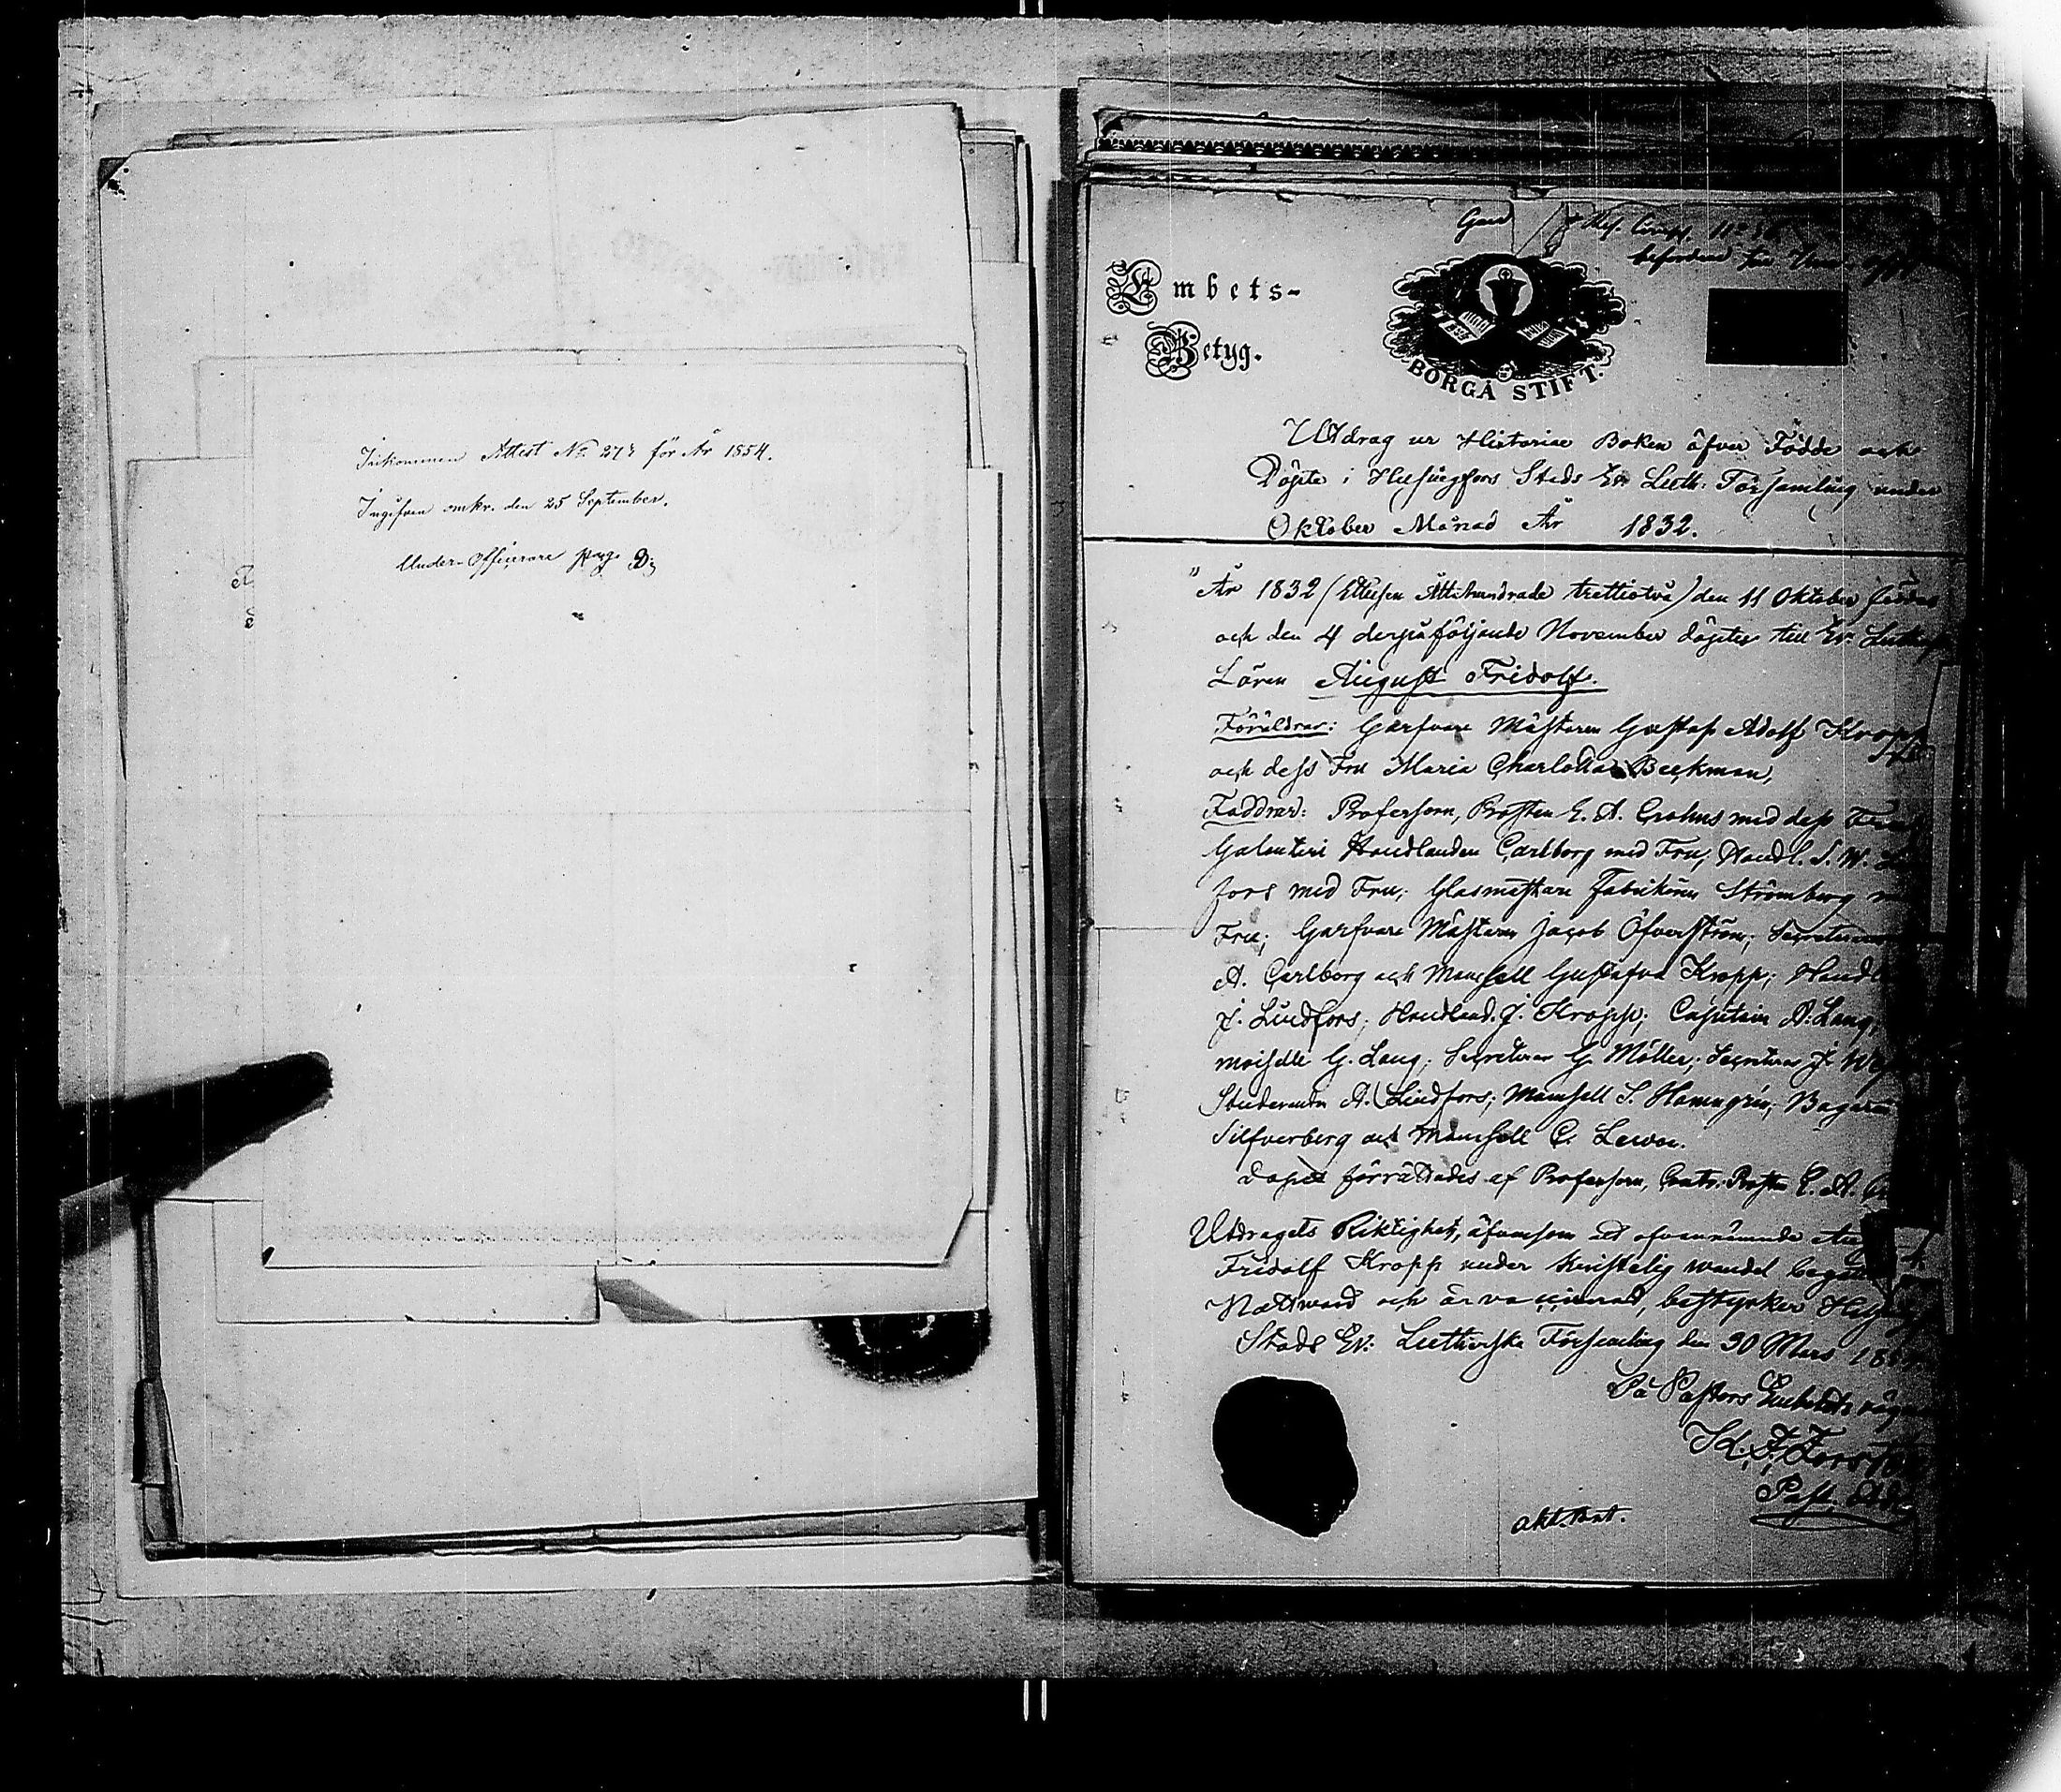 Inkommen Attest No. 278 för År 1854.
Ingifven omkr. den 25 September.
Under-Officerare
Embets-
Betyg.
BORGÅ STIFT.
Utdrag ur Historiae Boken öfver Födde och
Döpte i Helsingfors Stads Ev. Luth. Församling under
Oktober Månad År 1832.
"År 1832 (Ettusen Åttahundrade trettiotvå) den 11 Oktober föddes
och den 4 derpåföljande November döptes till Ev. Lutherska
Läran August Fridolf.
Föräldrar: Garfvare Mästaren Gustaf Adolf Kropp
och dess Fru Maria Charlotta Beckman,
Faddrar: Professorn, Prosten E. A. Crohns med dess Fru
Galanteri Handlanden Carlborg med Fru; Handl. S. W.
fors med Fru; Glasmästare Fabrikören Strömberg
Fru; Garfvare Mästaren Jacob Öfverström; Secreteraren
A. Carlborg och Mamsell Gustafva Kropp; Handl
J. Lindfors; Handland. J. Kropp; Capitain A. Lang,
moiselle G. Lang; Secreteren G. Möller; Secreteren J.
Studeranden A. Lindfors; Mamsell S. Hamngrén; Bagaren
Silfverberg och Mamsell C.
Dopet förrättades af Professorn, Contr. Prosten E. A.
Utdragets Riktighet, äfvensom att ofvannämnde
Fridolf Kropp under Kristelig wandel begått
Nattward och är vaccinerad, bestyrker
Stads Ev. Lutherska Församling den 30 Mars
På Pastors Embetets vägnar
Past. Adj.